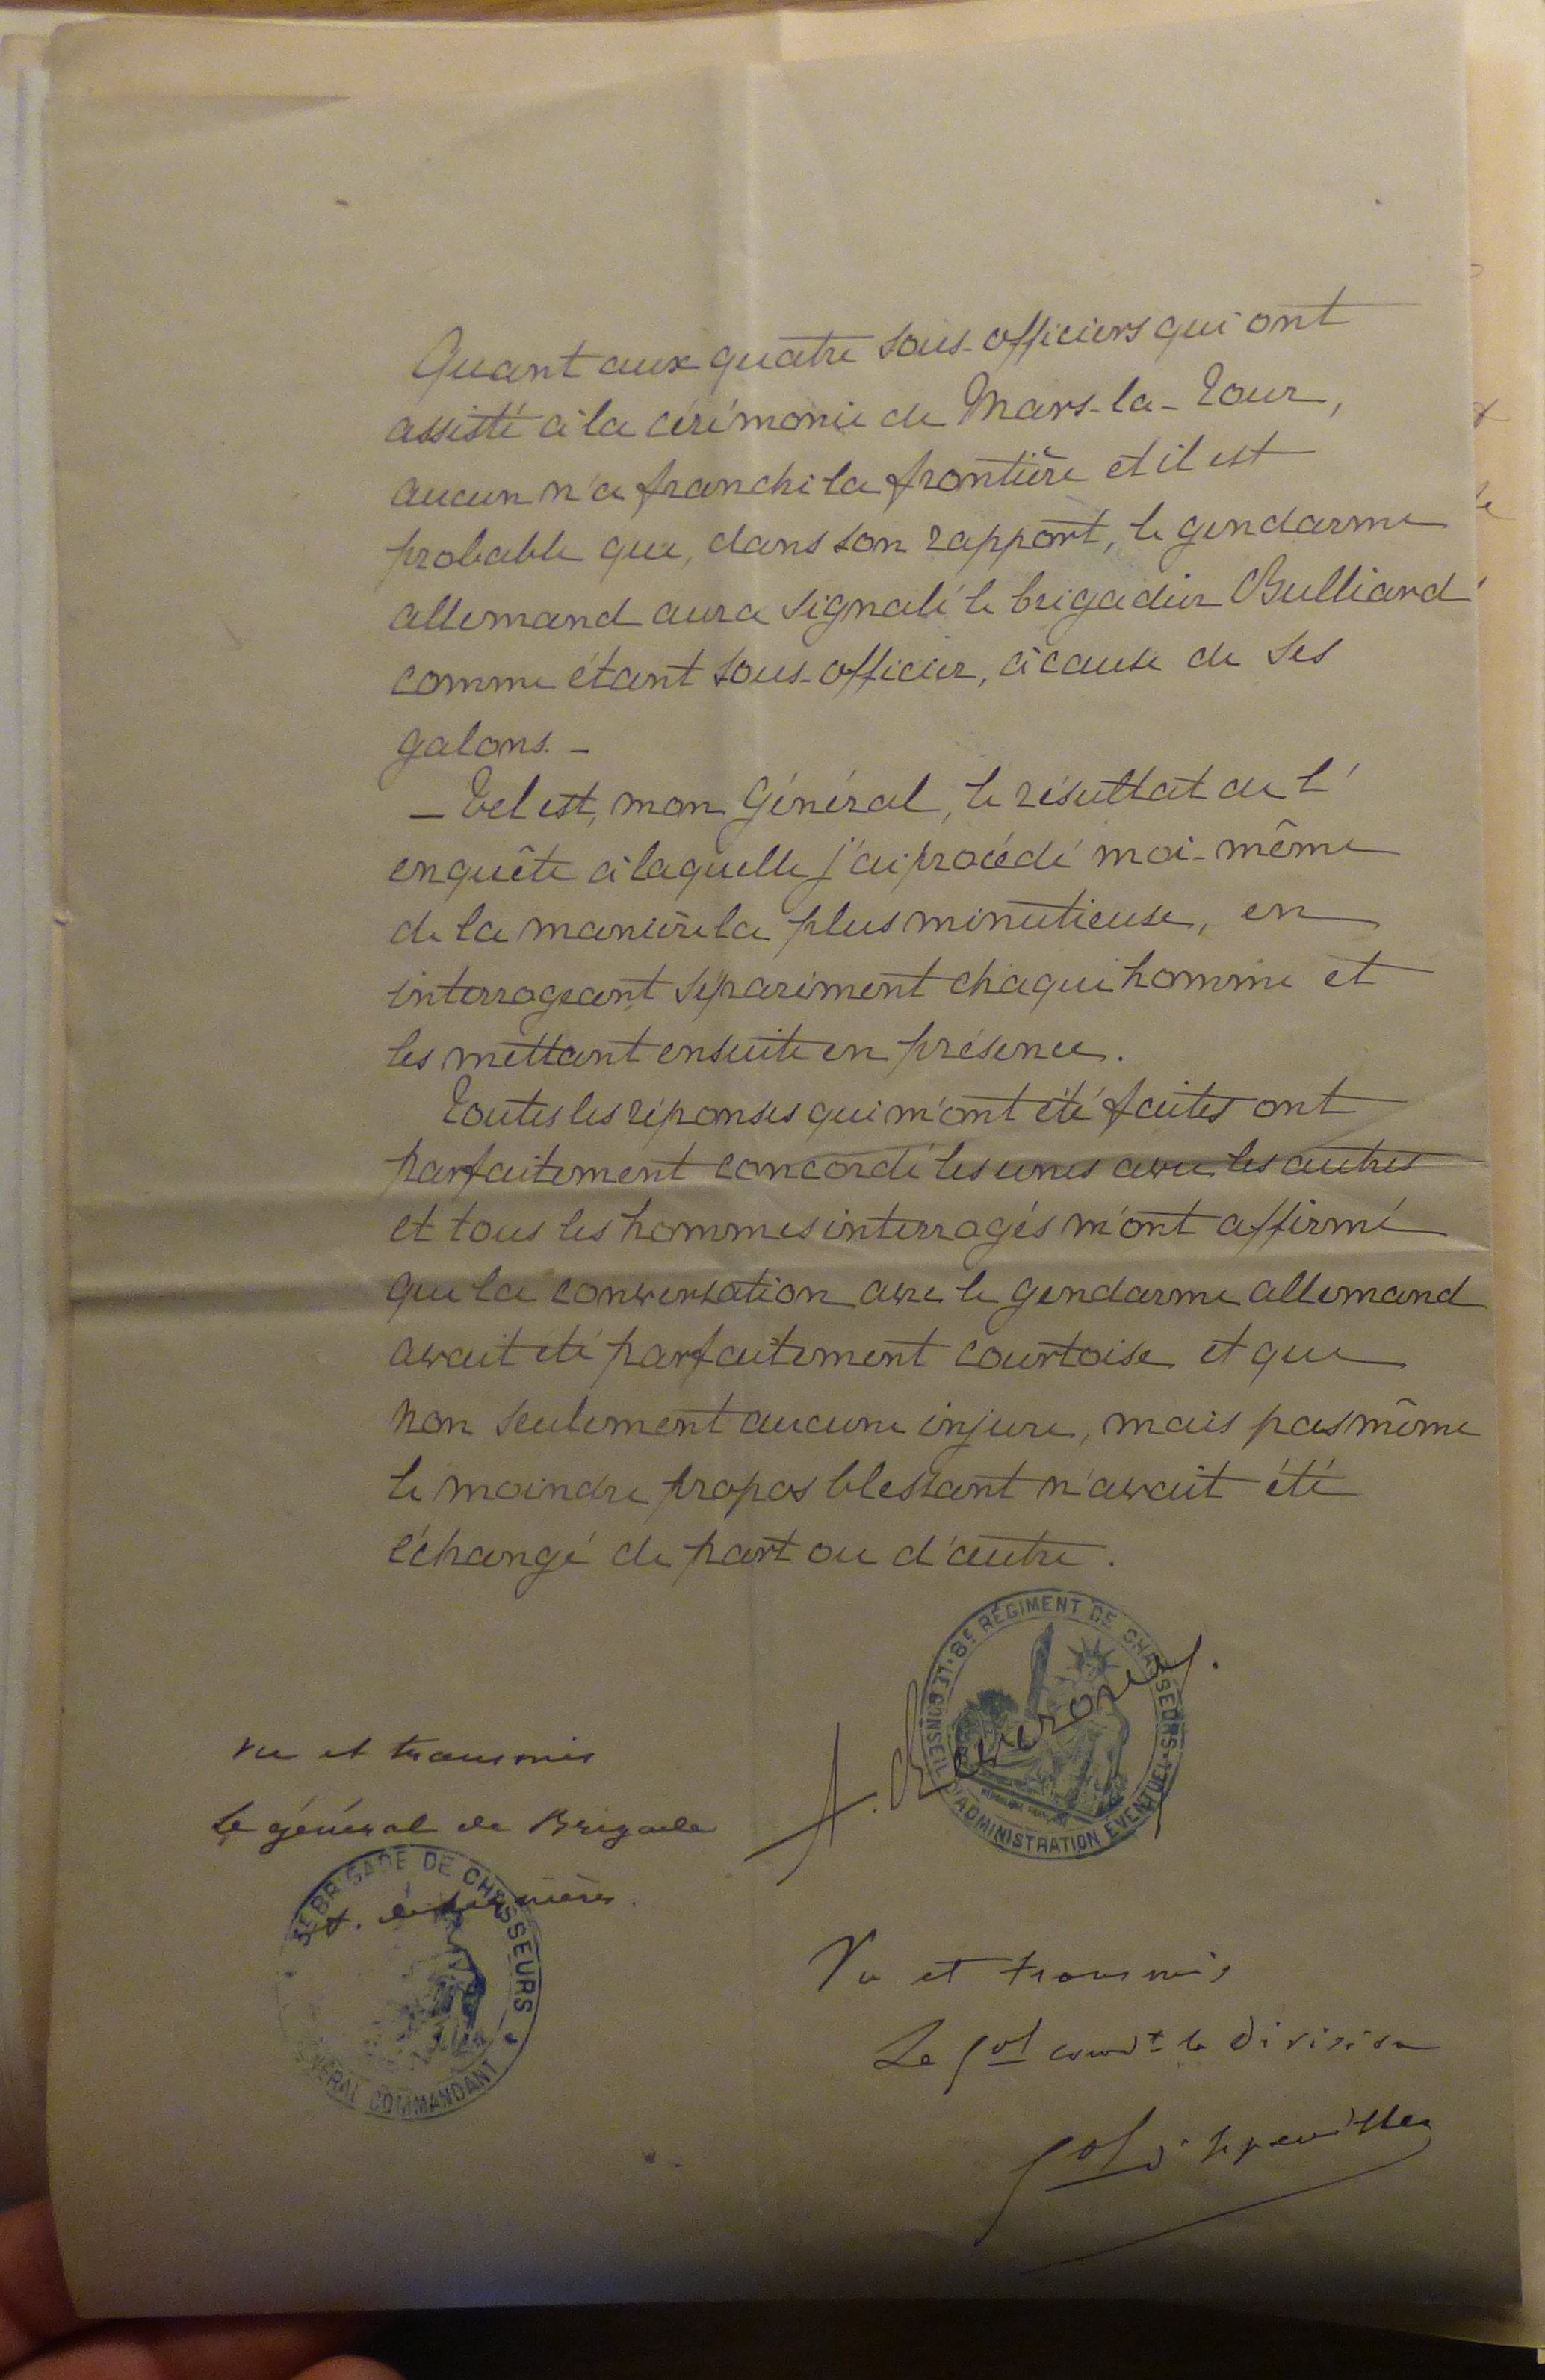 Quant aux quatre sous-officiers qui ont
assisté à la cérémonie de Mars-la-Tour,
aucun n'a franchi la frontière et il est
probable que, dans son rapport, le gendarme
allemand aura signalé le brigadier Bulliard
comme étant sous-officier, à cause de ses
galons. -
- Tel est, mon Général, le résultat de l'
enquête à laquelle j'ai procédé moi-même
de la manière la plus minutieuse, en
interrogeant séparément chaque homme et
les mettant ensuite en présence.
Toutes les réponses qui m'ont été faites ont
parfaitement concordé les unes avec les autres
et tous les hommes interrogés m'ont affirmé
que la conversation avec le gendarme allemand
avait été parfaitement courtoise et que
non seulement aucune injure, mais pas même
le moindre propos blessant n'avait été
échangé de part ou d'autre.
8E RÉGIMENT DE CHASSEURS
LE CONSEIL D'ADMINISTRATION EVENTUEL
A.
vu et transmis
Le général de Brigade
3E BRIGADE DE CHASSEURS
GÉNÉRAL COMMANDANT
Vu et transmis
Le Gal comdt la Division
Gal